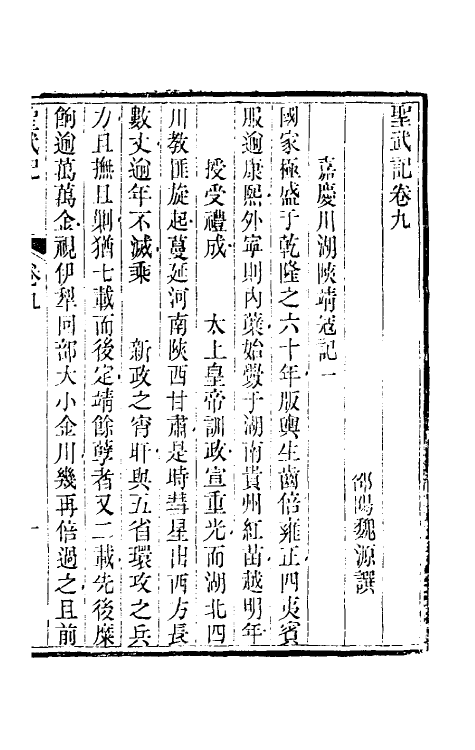 聖武記卷九
邵陽魏源譔
嘉慶川湖陝靖寇記一
國家極盛于乾隆之六十年版輿生齒倍雍正四夷賓
服逾康熙外寧則內蘖始釁于湖南貴州紅苗越明年
授受禮成 太上皇帝訓政宣重光而湖北四
川教匪旋起蔓延河南陝西甘肅是時彗星出西方長
數丈逾年不滅乘 新政之宵旰與五省環攻之兵
力且撫且剿猶七載而後定靖餘孽者又二載先後糜
餉逾萬萬金視伊犂回部大小金川幾再倍過之且前
聖武記 卷九 一